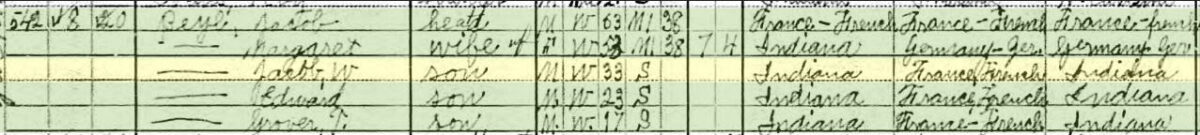 542 18 Beyl, Jacob head M W 63 M1 38 France-French France-French France-French
— Margaret wife W 58 M1 38 7 4 Indiana Germany-Ger Germany-Ger
— Jacob, W son M W 33 S Indiana France, French Indiana
— Edward son M W 23 S Indiana France, French Indiana
— Grover, T. son M W 17 S Indiana France-French Indiana